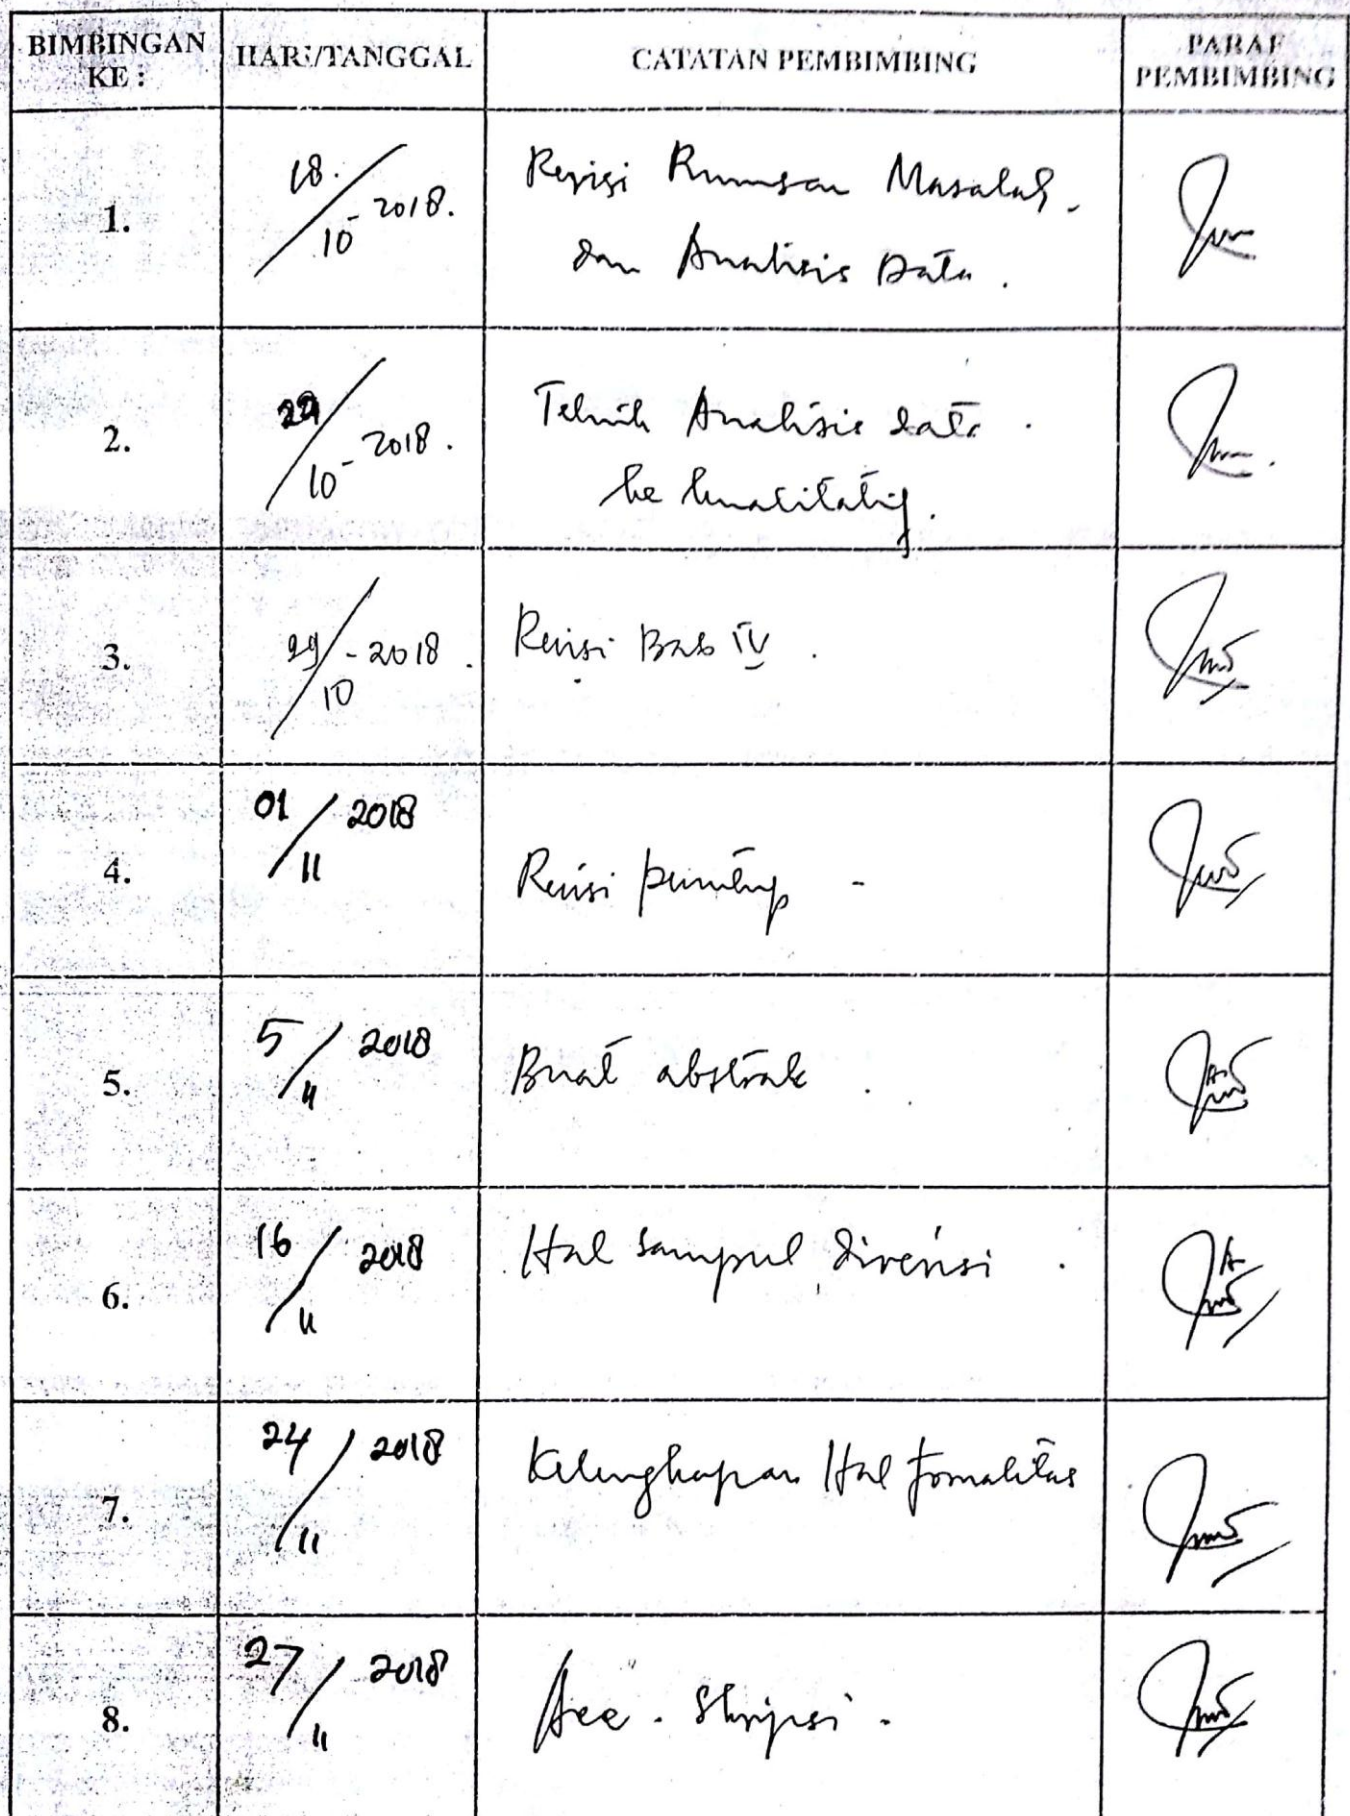 BIMBINGAN KE : HARI/TANGGAL CATATAN PEMBIMBING PARAF PEMBIMBING
1. 18/10-2018. Revisi Rumusan Masalah.
dan Analisis Data.
2. /10-2018. Teknik Analisis data.
ke kualitatif.
3. 29/10-2018. Revisi Bab IV.
4. 01/11 2018 Revisi penutup -
5. 5/11 2018 Buat abstrak.
6. 16/11 2018 Hal sampul direvisi.
7. 24/11 2018 Kelengkapan Hal formalitas
8. 27/11 2018 Acc. Skripsi.